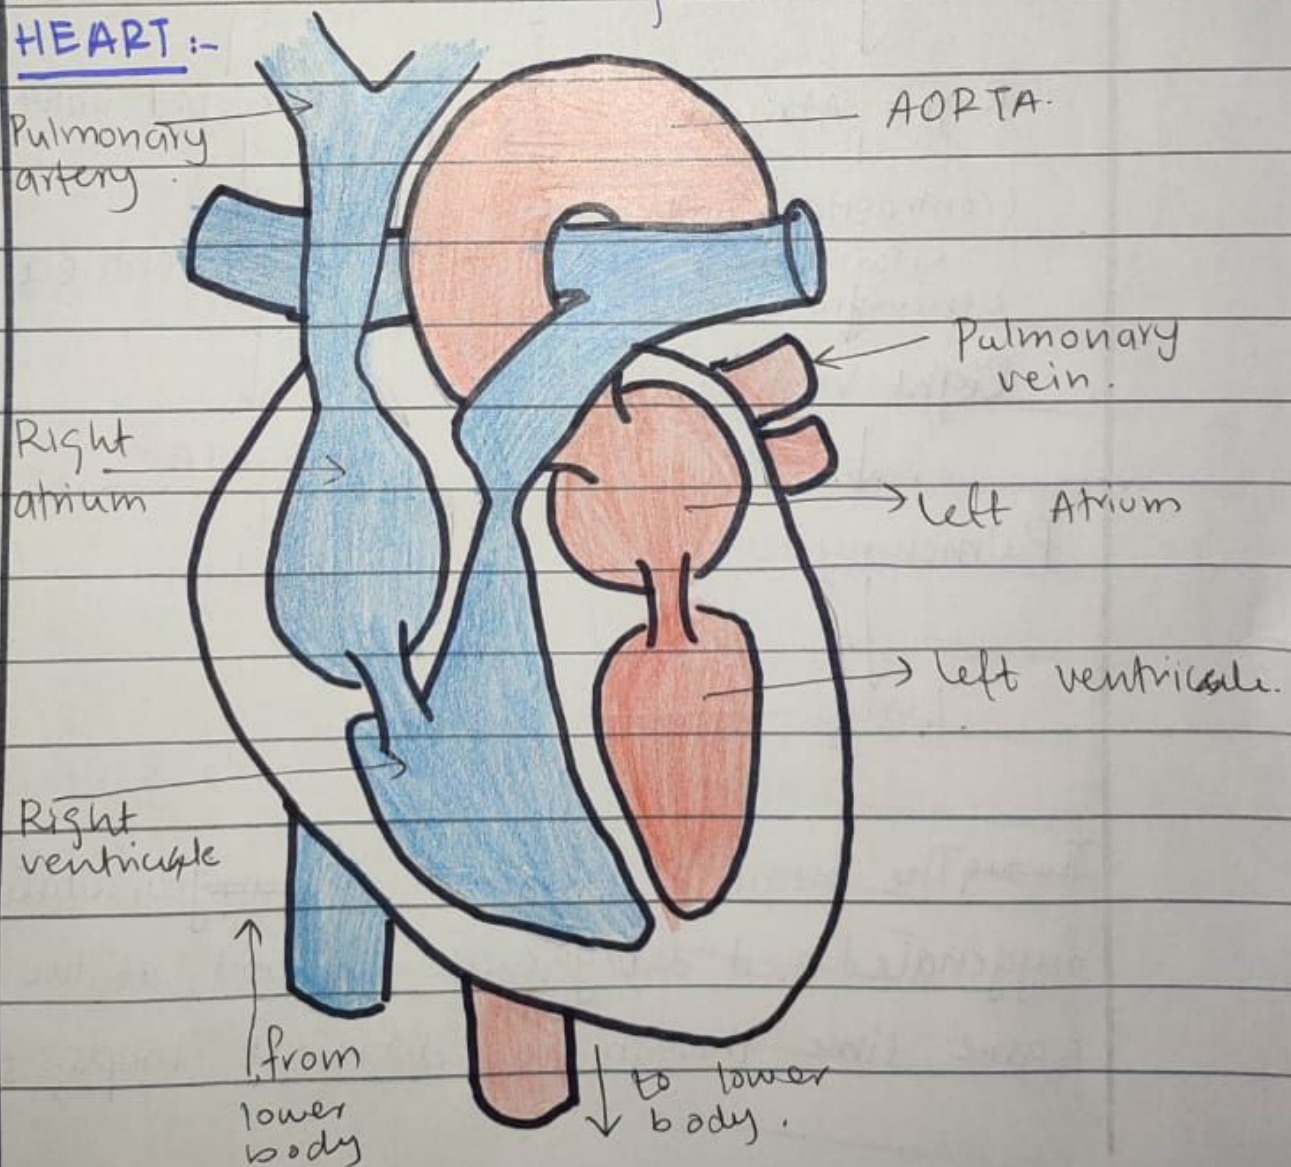 HEART :-
Pulmonary
artery.
AORTA.
Pulmonary
vein.
Right
atrium
left Atrium
left ventricule.
Right
ventricule
from
lower
body
to lower
body.